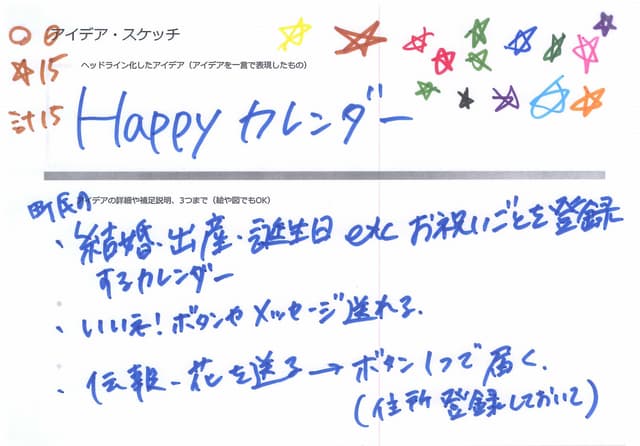 ○ 0
☆ 15
計 15
アイデア・スケッチ
ヘッドライン化したアイデア（アイデアを一言で表現したもの）
Happy カレンダー
アイデアの詳細や補足説明、3つまで（絵や図でもOK）
町民の
・結婚・出産・誕生日 etc お祝いごとを登録
するカレンダー
・いいね！ボタンやメッセージ送れる。
・伝報-花を送る→ボタン1つで届く.
（住所登録しておいて）